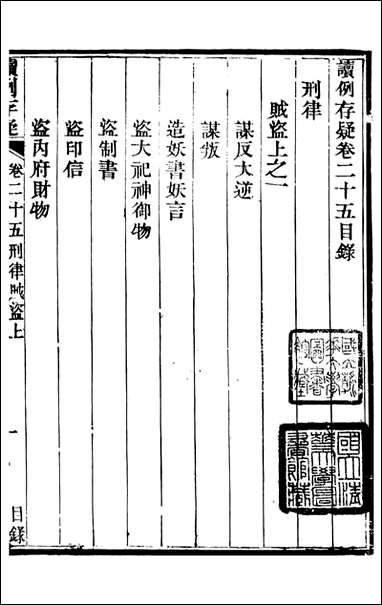 讀例存疑卷二十五目錄
刑律
賊盜上之一
謀反大逆
謀叛
造妖書妖言
盜大祀神御物
盜制書
盜印信
盜內府財物
讀例存疑
卷二十五刑律賊盜上
一
目錄